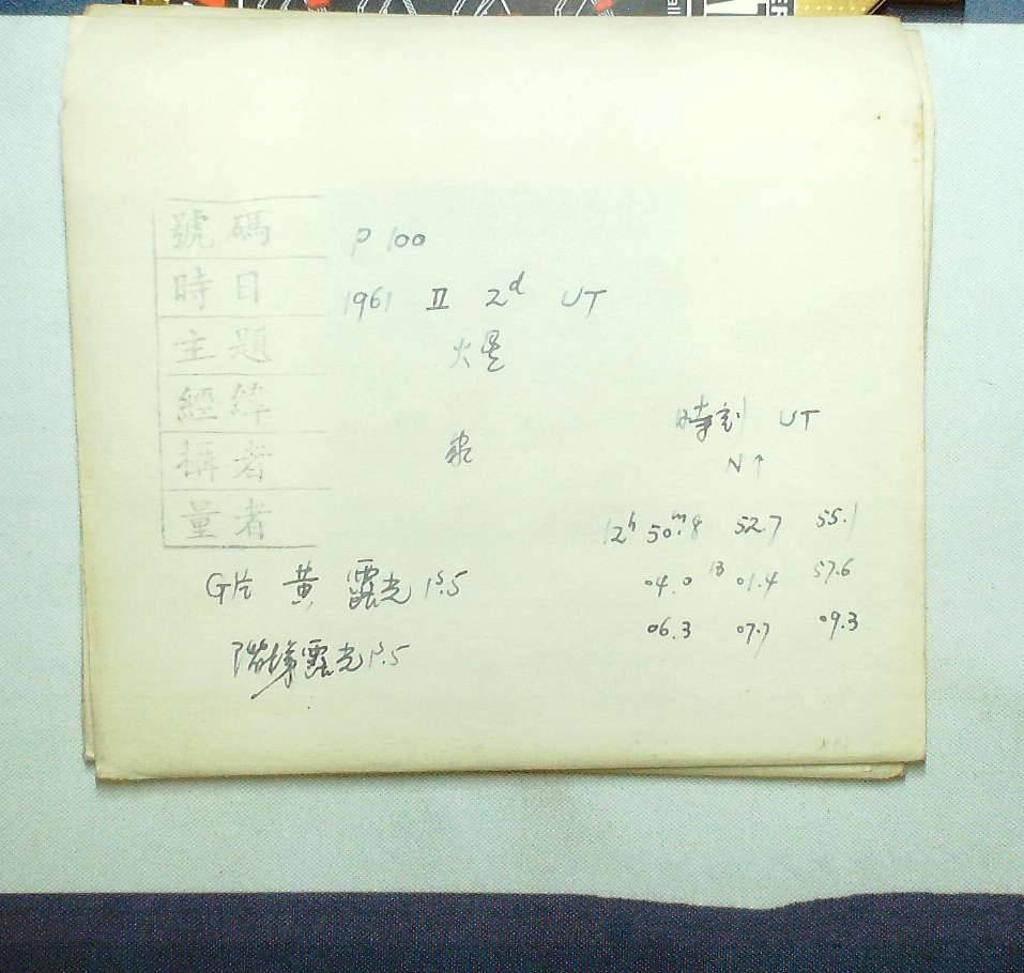 號碼 P 100
時日 1961 II 2d UT
主題 火星
經緯
攝者
量者
時刻 UT
N↑
12h 50m.8 52.7 55.1
04.0 13 01.4 57.6
06.3 07.7 09.3
G片 黃 露光 1s.5
階梯露光 1s.5